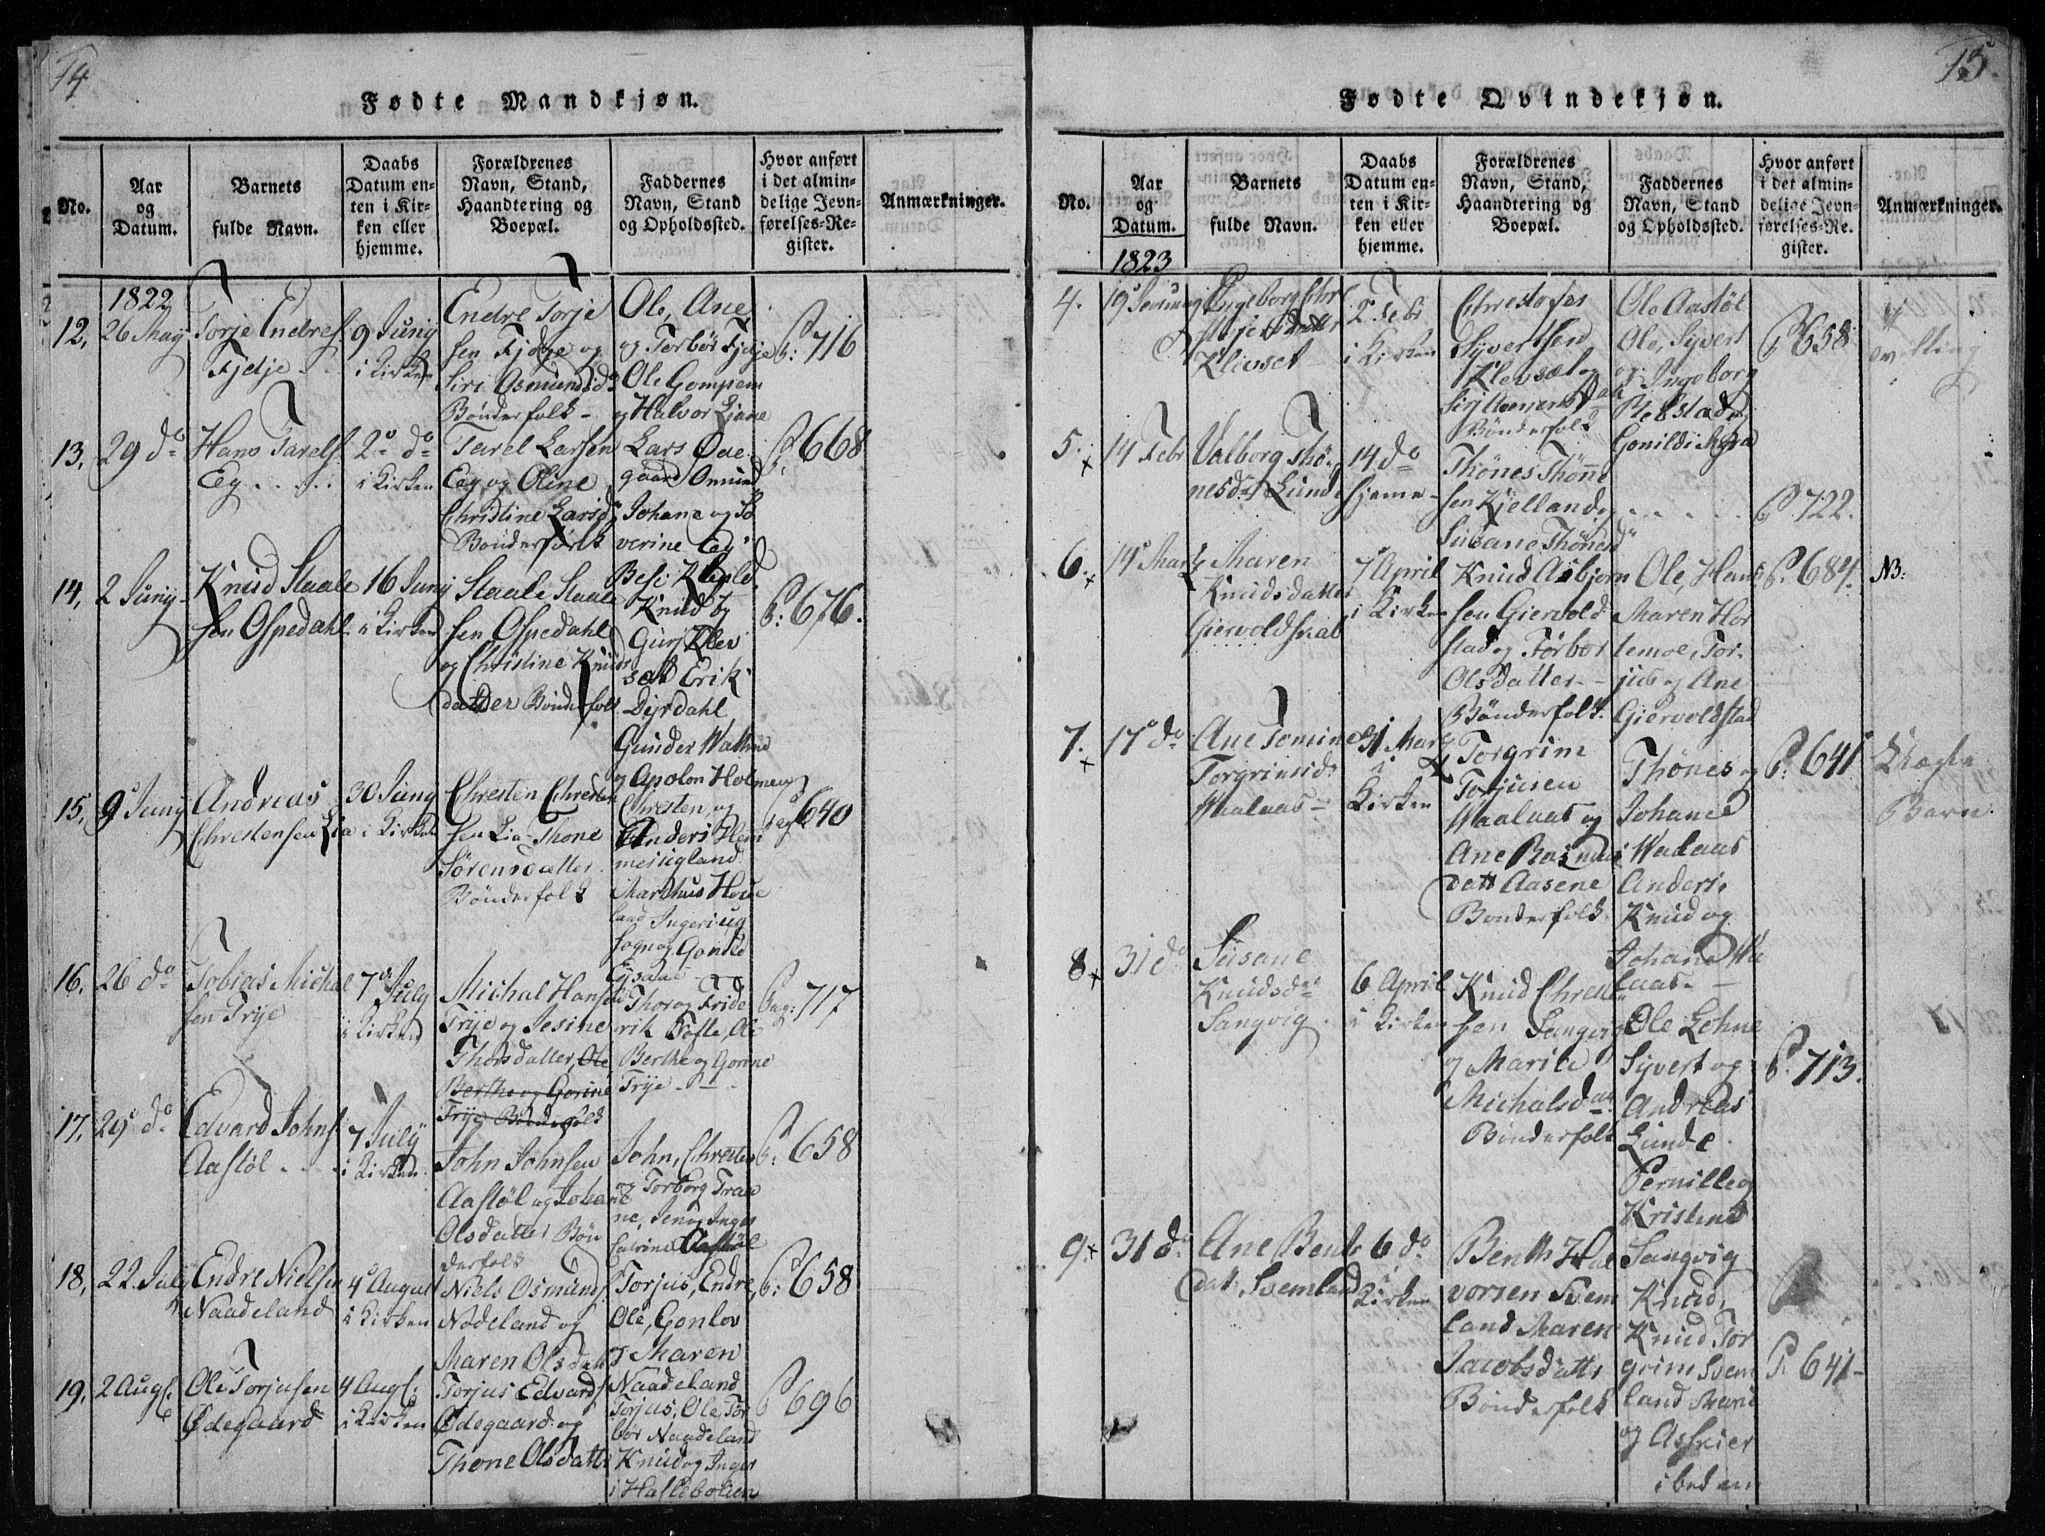 14
Fødte Mandkjøn.
No.
Aar
og
Datum.
Barnets
fulde Navn.
Daabs
Datum en-
ten i Kir-
ken eller
hjemme.
Forældrenes
Navn, Stand,
Haandtering og
Boepæl.
Faddernes
Navn, Stand
og Opholdssted.
Hvor anført
i det almin-
delige Jevn-
førelses-Re-
gister.
Anmærkninger.
1822
12,
26 May
Torje Endres.
Fjelje
9 Junij
i Kirken
Endre Torje
sen Fjelje og
Siri Osmundsd
Bønderfolk
Ole, Ane
og Torbör Fjelje
Ole Gompem
og Halvor Liane
P: 716
13,
29 do
Hans Tarels.
Eeg
2 do
i Kirken
Tarel Larsen
Eeg og Oline
Christine Larsd
Bønderfolk
Lars Ode
gaard Omund
Johane og Se
verine Eeg
P: 668
14,
2 Junij
Knud Staale
sen Ospedahl
16 Junij
i Kirken
Staale Staale
sen Ospedahl
og Christine Knuds
datter Bønderfolk
Knud og
Guri Klev
sæt Erik
Dyrdahl
P: 676.
15,
9 Junij
Andreas
Chrestensen Lia
30 Junij
i Kirken
Chresten Chresten
sen Lia Thone
Sörensdatter
Bønderfolk
Gunder Wathne
og Apolon Holmen
Chresten, og
Anders Hem
mesugland
Marthus Houe
land Inger
sogn og Gonild
Eysaas
Pag 640
16,
26 do
Tobias Michal
sen Frÿe
7 July
i Kirken
Michal Hansen
Frÿe og Jesine
Thorsdatter, Ole
Berthe og Gorine
Fryg Bønderfolk
Thor og Fride
rik Tofte, Ole
Berthe og Gorine
Frÿe
Pag: 717
17,
29 do
Edvard Johns.
Aastöl
7 July
i Kirken
John Johnsen
Aastöl og Johane
Olsdatter Bøn
derfolk
John, Chresten
og Torborg Trae
ne, Jens, Inger
Catrine Aastöl
P: 658
18,
22 July
Endre Nielsen
Naadeland
4 August
i Kirken
Niels Osmunds.
Nodeland og
Maren Olsdatt
Torjus, Endre,
Ole, Gonlov
og Maren
Naadeland
P: 658
19,
2 Augs.
Ole Torjusen
Ødegaard
4 Augs.
i Kirken
Torjus Edvards.
Ødegaard og
Thone Olsdatte
Torjus, Ole, Tor
bor Naadeland
Knud og Inger
i Hallebolien
P 696
15.
Fødte Qvindekjøn.
No.
Aar
og
Datum.
Barnets
fulde Navn.
Daabs
Datum en-
ten i Kir-
ken eller
hjemme.
Forældrenes
Navn, Stand,
Haandtering og
Boepæl.
Faddernes
Navn, Stand
og Opholdssted.
Hvor anført
i det almin-
delige Jevn-
førelses-Re-
gister.
Anmærkninger.
1823
4.
19 Januarij
Ingeborg
Klevset
2 Febr
i Kirken
Chrestofer
Syvertsen
Klevsæt og
Bønderfolk
Ole Aastöl
Ole, Syvert
og Ingeborg
Rebstad,
Gonild
P 658
Tvilling
5.
14 Febr
Valborg Thö
nesdr Lunde
14 do
hjeme
Thönes Thönne
sen Kjelland og
Susane Thönesd
P 722.
6.
14 Marts
Maren
Knudsdatter
Giervoldstad
7 April
i Kirken
Knud Asbjorn
sen Giervold
stad og Torbor
Olsdatter
Bønderfolk.
Ole, Hans
Maren Hor
temoe, Tor
jus og Ane
Giervoldstad
P. 684.
NB:
7.
17 do
Ane Tomine
Torgrimsd
Waalaas
31 Marts
i
Kirken
Torgrim
Torjusen
Waalaas og
Ane Rasmus
datt Aasene
Bønderfolk
Thönes og
Johane
Walaas
Anders,
Knud og
Johane Wa
laas
P: 641
Uægte
Barn.
8
31 do
Susane
Knudsdr
Sangvig
6 April
i Kirken
Knud Chresten
sen Sangvig
og Maria
Michalsdatt
Bønderfolk
Ole Lohne
Syvert og
Andreas
Lunde
Pernille og
Kristine
Sangvig
P. 713.
9
31 do
Ane Bents
datt. Svemland
6 do
i
Kirken
Benth Hal
vorsen Svem
land Maren
Jacobsdatte
Bønderfolk
Knud,
Knud Tor
grim Svem
land Maria
og Asseier
ibedem
P. 641